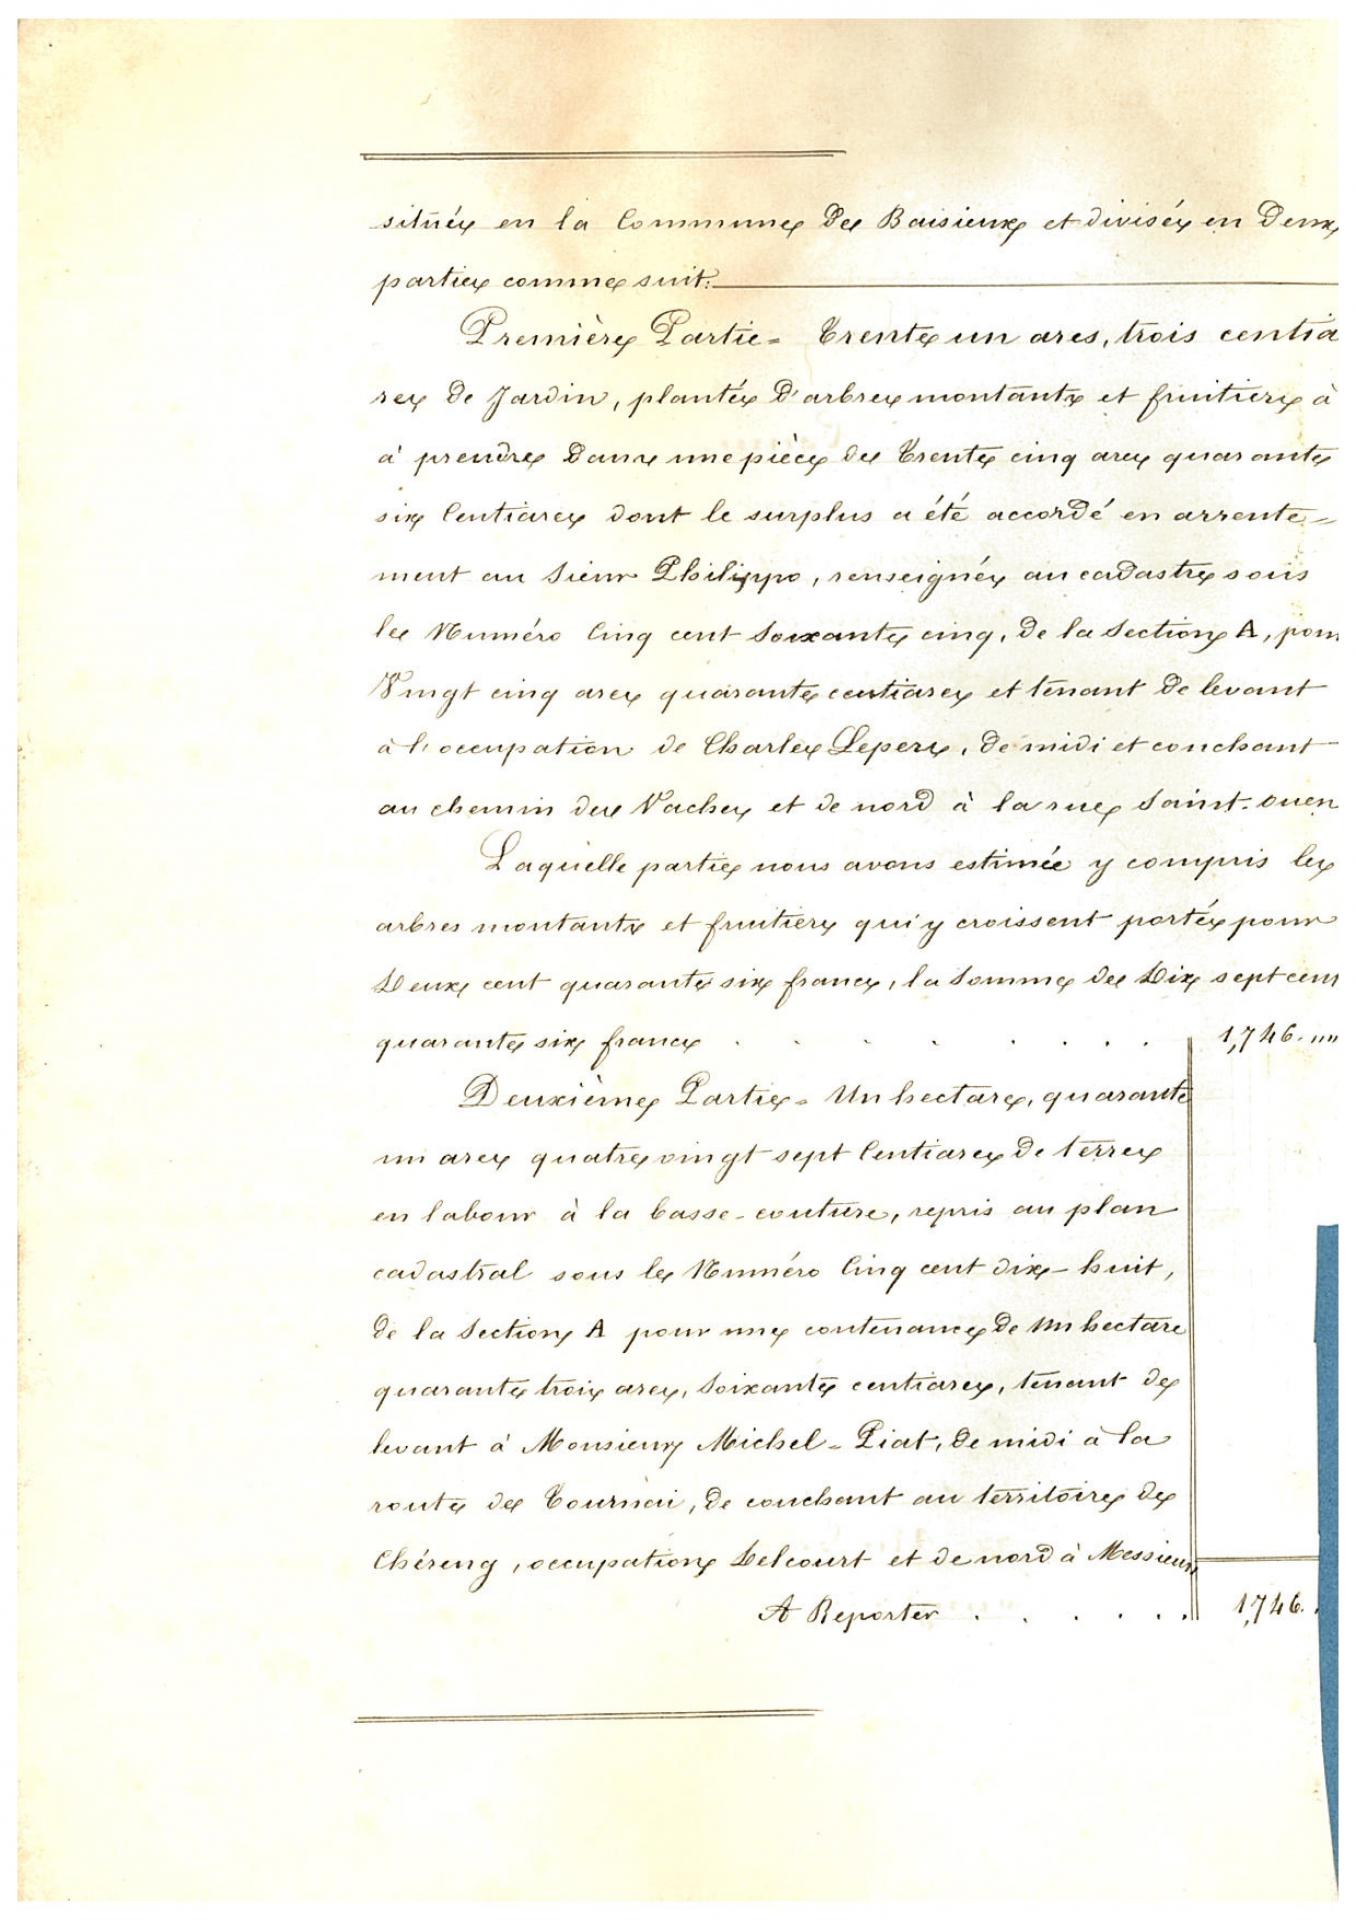 située en la Commune de Baisieux et divisée en Deux
parties comme suit.
Première Partie = Trente un ares, trois centia
res de Jardin, plantée d'arbres montants et fruitiers à
à prendre dans une pièce de Trente cinq ares quarante
six Centiares dont le surplus a été accordé en arrente=
ment au Sieur Philippo, renseignée au cadastre sous
le Numéro Cinq cent Soixante cinq, de la Section A, pour
Vingt cinq ares quarante centiares et tenant de levant
à l'occupation de Charles Lepers, de midi et couchant
au chemin des Vaches et de nord à la rue Saint-Ouen
Laquelle partie nous avons estimée y compris les
arbres montants et fruitiers qui y croissent portés pour
Deux cent quarante six francs, la Somme de Dix sept cent
quarante six francs . . . . . . . . 1,746. ""
Deuxième Partie = Un hectare, quarante
un ares quatre vingt sept Centiares de terre
en labour à la basse-couture, repris au plan
cadastral sous le Numéro Cinq cent dix-huit,
de la Section A pour une contenance de Un hectare
quarante trois ares, Soixante centiares, tenant de
levant à Monsieur Michel-Piat, de midi à la
route de Tournai, de couchant au territoire de
Chéreng, occupation Delcourt et de nord à Messieurs
A Reporter . . . . . . 1,746.